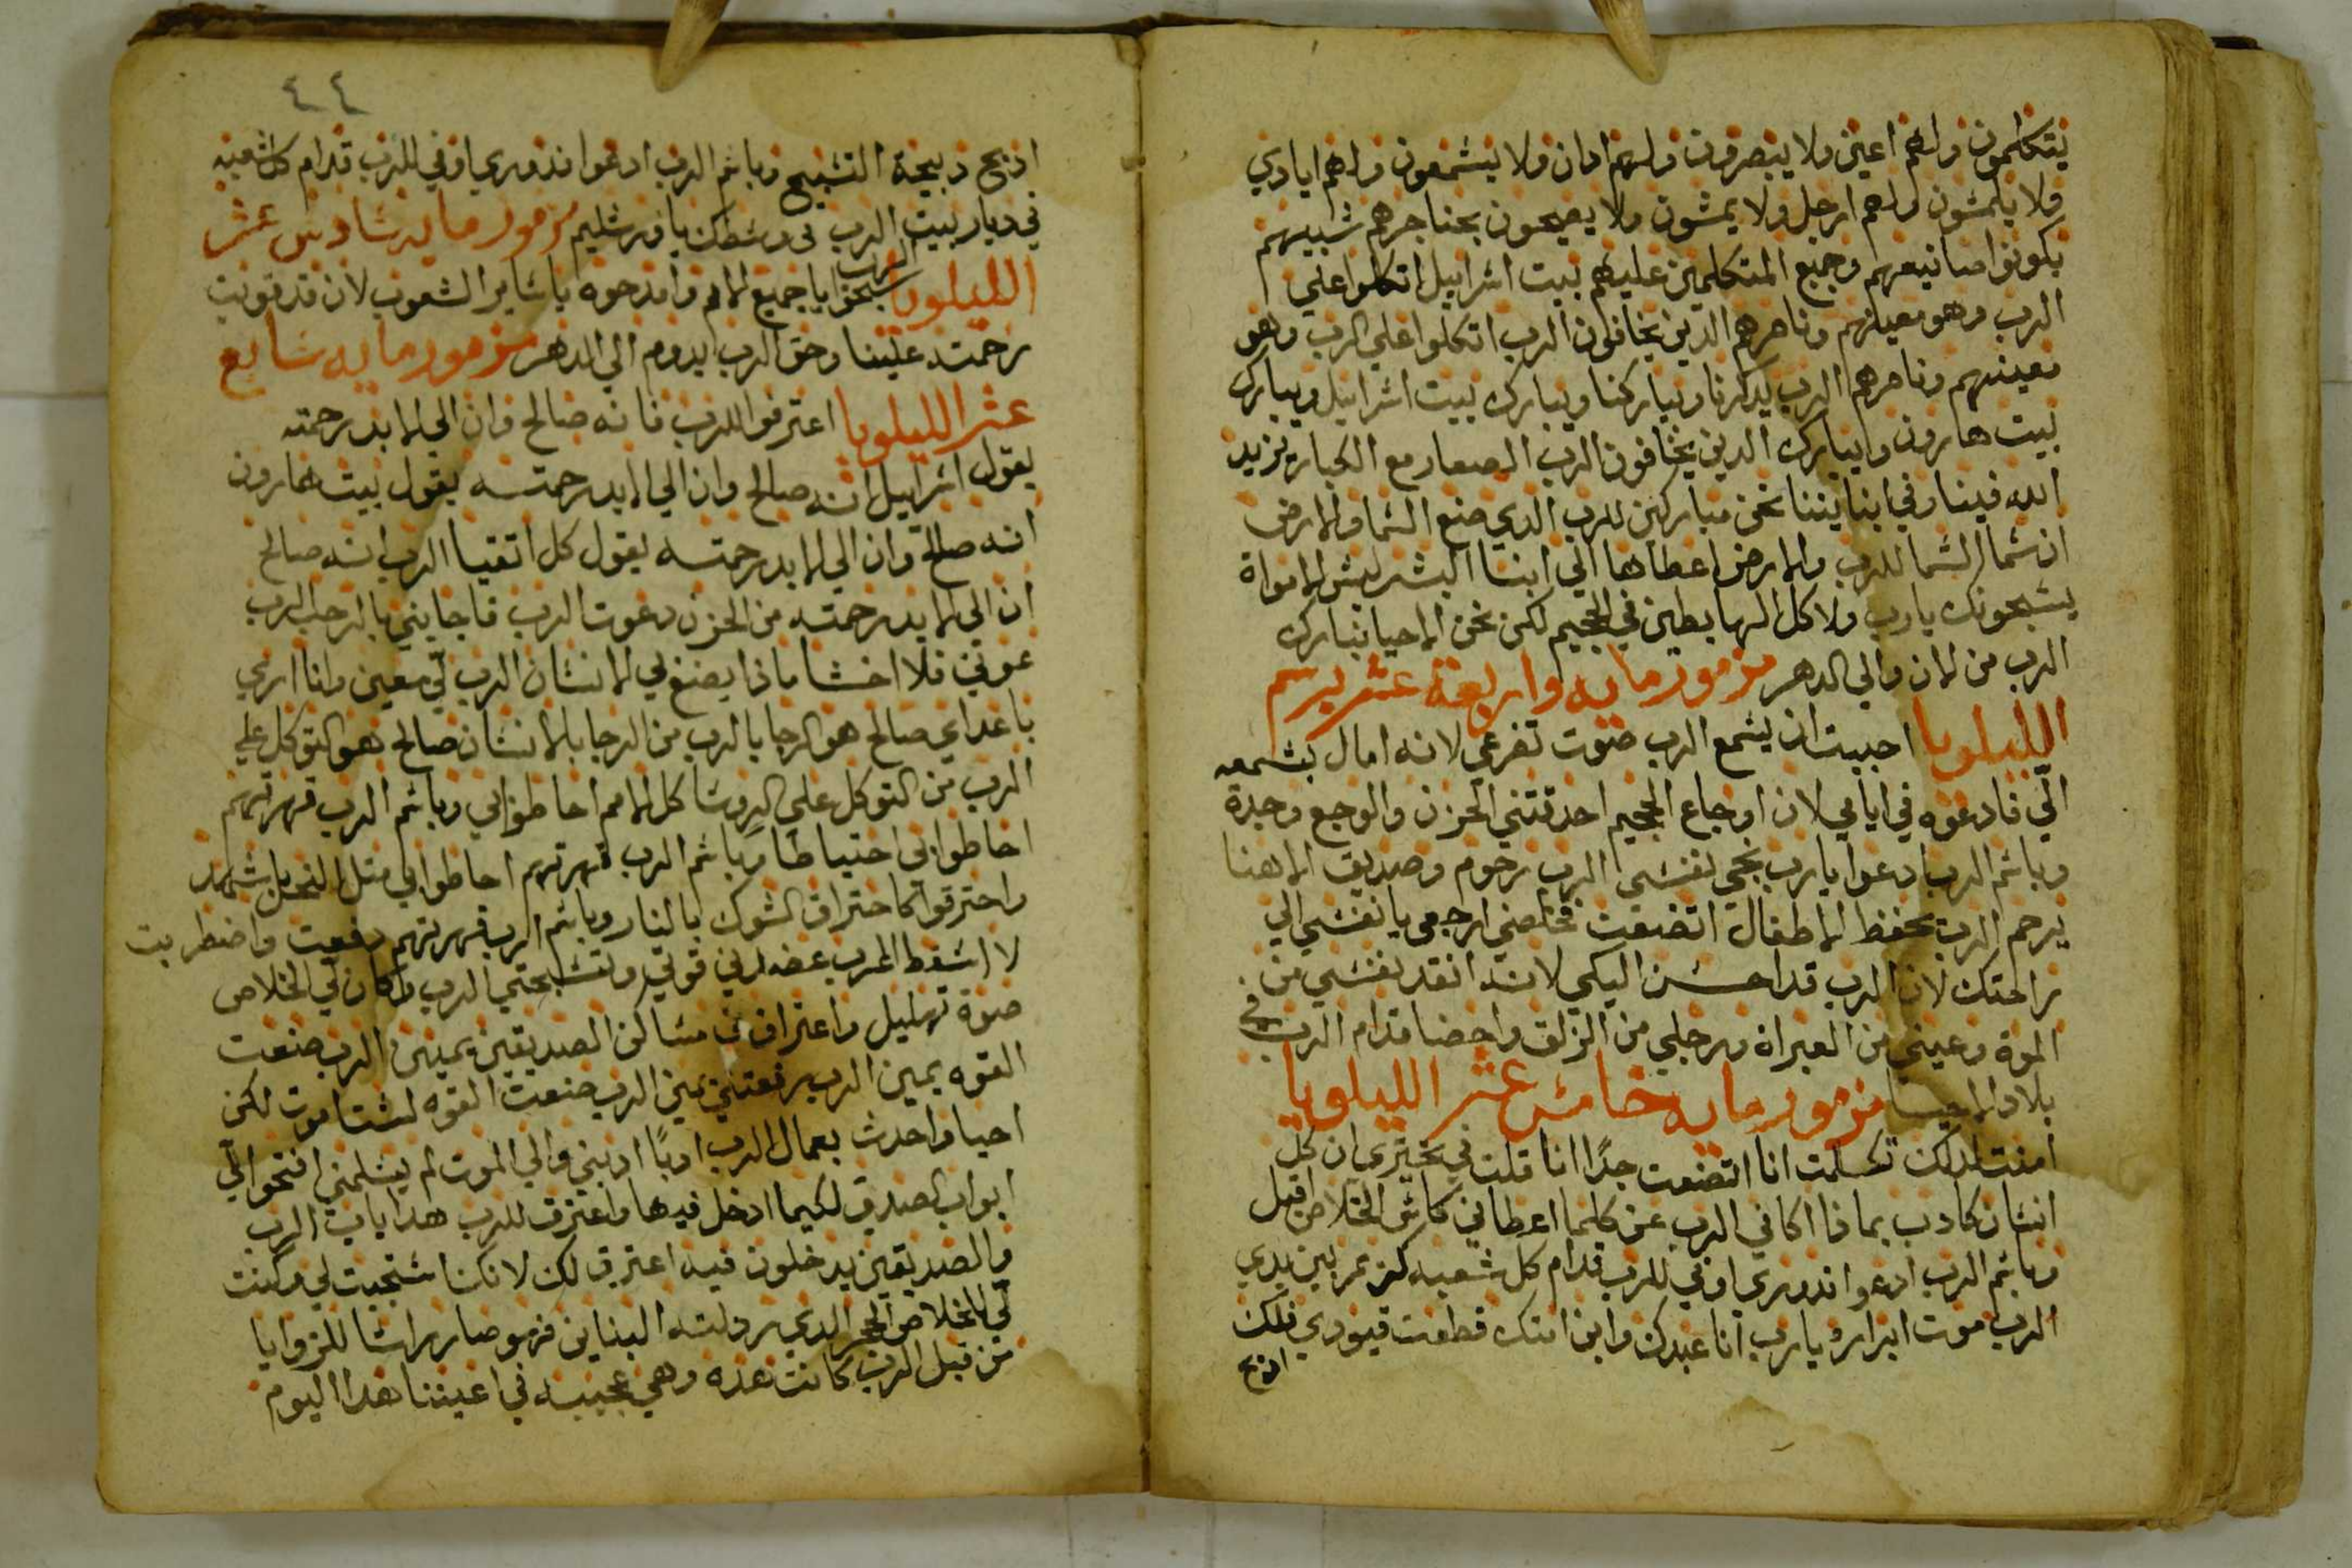 يتكلمون ولهم اعين ولا يبصرون ولهم ادان ولا يشمعون ولهم ايادي
ولا يلمشون ولهم ارجل ولا يمشون ولا يصيحون بحناجرهم شبيههم
يكونوا صانيعهم وجميع المتكلمين عليهم بيت اشراييل اتكلوا علي
الرب وهو معينهم وناصرهم الدين يخافون الرب اتكلوا علي الرب وهو
معينهم وناصرهم الرب يدكرنا ويباركنا ويبارك بيت اشراييل ويبارك
بيت هارون وايبارك الدين يخافون الرب الصغار مع الكبار يزيد
الله فينا وفي ابناينا نحن مباركين للرب الدي صنع الشما والارض
ان شما الشما للرب والارض اعطاها الي ابنا البشر ليش الامواة
يشبحونك يارب ولا كل الهابطين في الجحيم لكن نحن الاحيا نبارك
الرب من الان والي الدهر مزمور مايه واربعة عشر برسم
الليلويا احببت ان يشمع الرب صوت تضرعي لانه امال بشمعه
الّي فادعوه في ايامي لان اوجاع الجحيم احدقتني الحزن والوجع وجدة
وباشم الرب ادعوا يارب نجي نفشي الرب رحوم وصديق الاهنا
يرحم الرب يحفظ الاطفال اتضعت فخلصني ارجعي يا نفشي الي
راحتك لان الرب قد احشن اليكي لانه انقد نفشي من
الموة وعيني من العبراة ورجلي من الزلق واحضا قدام الرب في
بلاد الاحيا مزمور مايه خامش عشر الليلويا
امنت لدلك تكلمت انا اتضعت جدًا انا قلت في تحيري ان كل
انشان كادب بماذا اكافي الرب عن كلما اعطاني كاش الخلاص اقبل
وباشم الرب ادعوا ندوري اوفي للرب قدام كل شعبه كريم بين يدي
الرب موت ابراره يارب انا عبدك وابن امتك قطعت قيودي فلك
ادبح
٤٤
ادبح دبيحة التشبيح وباشم الرب ادعوا ندوري اوفي للرب قدام كل شعبه
في ديار بيت الرب في وشطك يا اورشليم مزمور مايه شادس عشر
الليلويا شبحوا الرب يا جميع الامم وامدحوه يا شاير الشعوب لان قد قويت
رحمته علينا وحق الرب يدوم الي الدهر مزمور مايه شابع
عشر الليلويا اعترفوا للرب فانه صالح وان الي الابد رحمته
يقول اشراييل انه صالح وان الي الابد رحمته يقول بيت هارون
انه صالح وان الي الابد رحمته يقول كل اتقيا الرب انه صالح
ان الي الابد رحمته من الحزن دعوت الرب فاجابني بالرحب الرب
عوني فلا اخشا ماذا يصنع بي الانشان الرب لي معين وانا اري
باعداي صالح هو الرجا بالرب من الرجا بالانشان صالح هو التوكل علي
الرب من التوكل علي الروشا كل الامم احاطوا بي وباشم الرب قهرتهم
احاطوا بي احتياطا وباشم الرب قهرتهم احاطوا بي مثل النحل بالشهد
واحترقوا كاحتراق الشوك بالنار وباشم الرب قهرتهم دفعت واضطربت
لا اشقط الرب عضدني قوتي وتشبحتي الرب وكان لي الخلاص
صوة تهليل واعتراف في مشاكن الصديقين يمين الرب صنعت
القوه يمين الرب رفعتني يمين الرب صنعت القوه لشت اموت لكن
احيا واحدث بعمال الرب ادبًا ادبني والي الموت لم يشلمني افتحوا لّي
ابواب الصدق لكيما ادخل فيها واعترف للرب هدا باب الرب
والصديقين يدخلون فيه اعترف لك لانك اشتجبت لي وكنت
لّي للخلاص الحجر الدي ردلته البنايين فهو صار راشا للزوايا
من قبل الرب كانت هده وهي عجيبه في اعيننا هدا اليوم